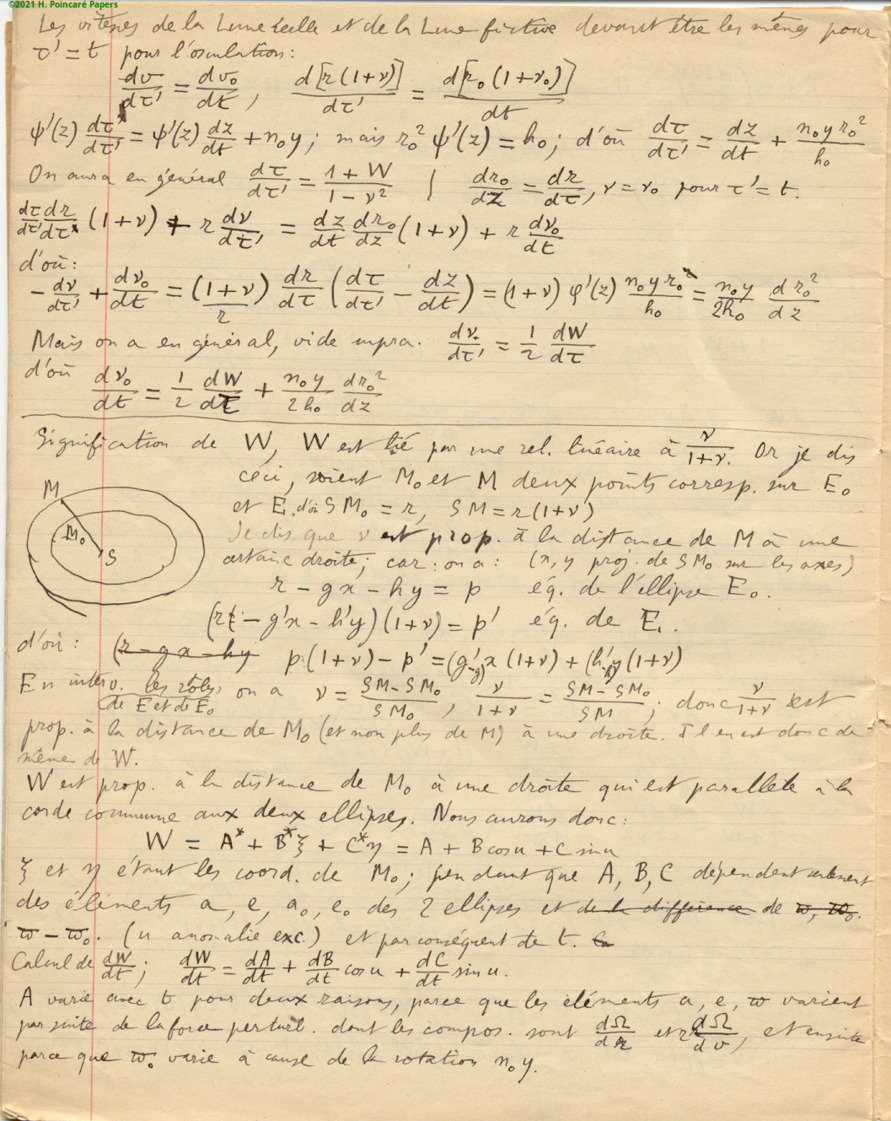 ©2021 H. Poincaré Papers
Les vitesses de la Lune réelle et de la Lune fictive devant être les mêmes pour
τ' = t pour l'osculation:
dv/dτ' = dv₀/dt, d[r(1+ν)]/dτ' = d[r₀(1+ν₀)]/dt
ψ'(z) dτ/dτ' = ψ'(z) dz/dt + n₀y; mais r₀² ψ'(z) = h₀; d'où dτ/dτ' = dz/dt + n₀y r₀²/h₀
On aura en général dτ/dτ' = (1+W)/(1-ν²) | dr₀/dz = dr/dτ, ν = ν₀ pour τ' = t.
dτ/dτ' dr/dτ (1+ν) + r dν/dτ' = dz/dt dr₀/dz (1+ν) + r dν₀/dt
d'où:
-dν/dτ' + dν₀/dt = (1+ν)/r dr/dτ (dτ/dτ' - dz/dt) = (1+ν) φ'(z) n₀y r₀²/h₀ = n₀y/2h₀ dr₀²/dz
Mais on a en général, vide supra. dν/dτ' = 1/2 dW/dτ
d'où dν₀/dt = 1/2 dW/dτ + n₀y/2h₀ dr₀²/dz
Signification de W, W est lié par une rel. linéaire à ν/(1+ν). Or je dis
ceci, soient M₀ et M deux points corresp. sur E₀
et E, d'où SM₀ = r, SM = r(1+ν)
Je dis que ν est prop. à la distance de M à une
certaine droite; car: on a: (x, y proj. de SM₀ sur les axes)
r - gx - hy = p éq. de l'ellipse E₀.
(r - g'x - h'y)(1+ν) = p' éq. de E.
d'où: (r - gx - hy p(1+ν) - p' = (g'-g)x(1+ν) + (h'-h)y(1+ν)
En interv. les rôles de E et de E₀ on a ν = (SM-SM₀)/SM₀, ν/(1+ν) = (SM-SM₀)/SM; donc ν/(1+ν) est
prop. à la distance de M₀ (et non plus de M) à une droite. Il en est donc de
même de W.
W est prop. à la distance de M₀ à une droite qui est parallèle à la
corde commune aux deux ellipses. Nous aurons donc:
W = A* + B*ξ + C*η = A + B cos u + C sin u
ξ et η étant les coord. de M₀; pendant que A, B, C dépendent seulement
des éléments a, e, a₀, e₀ des 2 ellipses et de la différence de ϖ, ϖ₀.
ϖ - ϖ₀. (u anomalie exc.) et par conséquent de t.
Calcul de dW/dt; dW/dt = dA/dt + dB/dt cos u + dC/dt sin u.
A varie avec t pour deux raisons, parce que les éléments a, e, ϖ varient
par suite de la force perturb. dont les compos. sont dΩ/dr et dΩ/dv, et ensuite
parce que ϖ₀ varie à cause de la rotation n₀y.
M
M₀
S